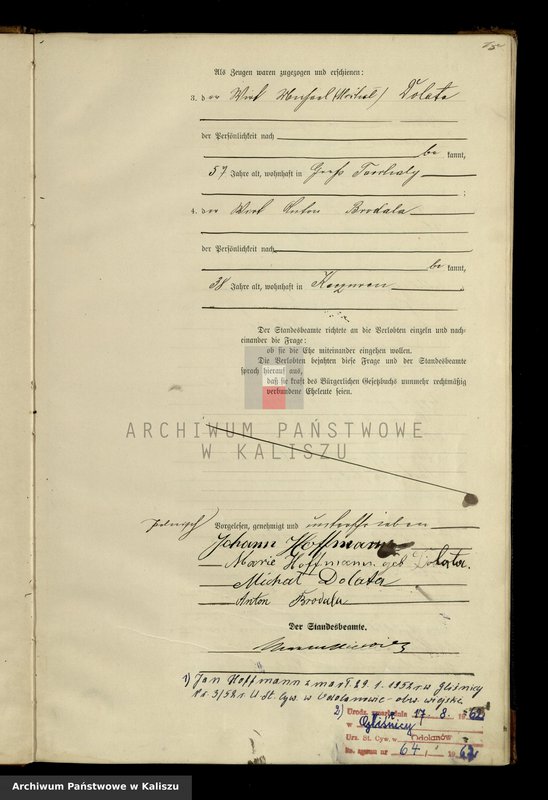 Als Zeugen waren zugezogen und erschienen:
3. der Wirt Michael (Michal) Dolata
der Persönlichkeit nach
be kannt,
57 Jahre alt, wohnhaft in Groß
;
4. der Wirt Anton Brodala
der Persönlichkeit nach
be kannt,
38 Jahre alt, wohnhaft in
Der Standesbeamte richtete an die Verlobten einzeln und nach-
einander die Frage:
ob sie die Ehe miteinander eingehen wollen.
Die Verlobten bejahten diese Frage und der Standesbeamte
sprach hierauf aus,
daß sie kraft des Bürgerlichen Gesetzbuchs nunmehr rechtmäßig
verbundene Eheleute seien.
ARCHIWUM PAŃSTWOWE
W KALISZU
Vorgelesen, genehmigt und unterschrieben
Johann Hoffmann
Marie Hoffmann geb Dolata.
Michał Dolata
Anton Brodala
Der Standesbeamte.
1) Jan Hoffmann zmarł 29. 1. 1952 r. w Gliśnicy
Nr. 3/52 r. U. St. Cyw. w Odolanowie - obw. wiejski
2) Urodz. 17. 8. 1962
w Gliśnicy
Urz. St. Cyw. w Odolanów
Nr. 64 / 1962
Archiwum Państwowe w Kaliszu